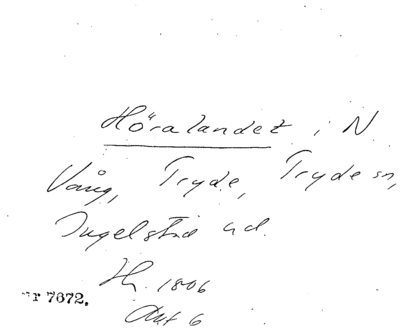 Höralandet i N
Vång, Tryde, Tryde sn,
Ingelstad hd.
Hr. 1806
Akt 6
nr 7672.